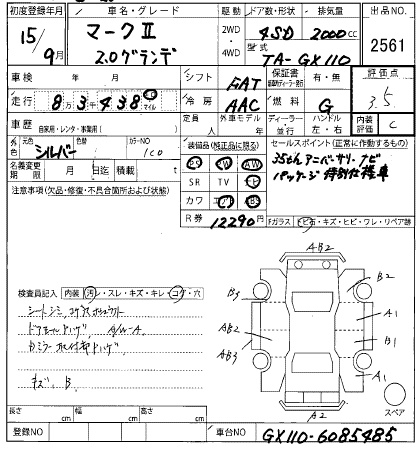 初度登録年月 車名・グレード 駆動 ドア数・形状 排気量 出品NO.
15年 9月 マークII 2.0グランデ 2WD・4WD 4SD 2000cc 2561
型式 TA- GX110
車検 年 月 シフト FAT 保証書 有・無 評価点
走行 8万3千438 km マイル 冷房 AAC 燃料 G 3.5
車歴 自家用・レンタ・事業用( ) 定員 人 外車モデル ディーラー・並行 ハンドル 左・右 内装評価 C
外色 元色 シルバー 替色 カラーNO 1C0
装備品(純正品に限る) セールスポイント(正常に作動するもの)
名義変更期限 月 日迄 積載 t
PS PW AW
SR TV ナビ
カワ エアB ABS
35thアニバーサリーナビ
パッケージ特別仕様車
R券 12290円
注意事項(欠品・修復・不具合箇所および状態)
Fガラス ヒビ石・キズ・ヒビ・ワレ・リペア跡
検査員記入 内装 汚レ・スレ・キズ・キレ・コゲ・穴
シートシミ
A/W-A
キズ B
AB2
B2
B3
A1
AB2
B1
AB3
A1
A2
スペア
長さ cm 幅 cm 高さ cm
登録NO 車台NO GX110-6085485